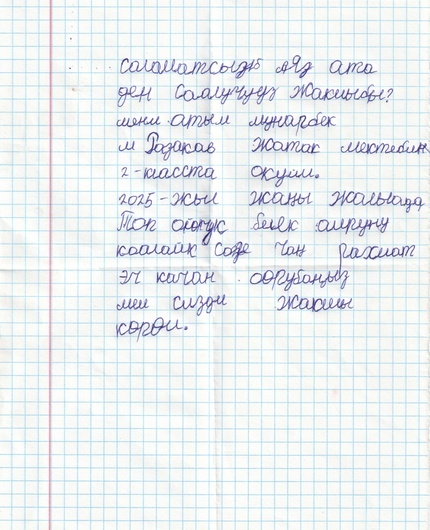 саламатсызбы аяз ата
ден соолугуңуз Жакшыбы?
мени атым мунарбек
м Розаков Жатак мектебин
2-класста окуйм.
2025-жыл жаңы жылыңызда
Топ белек алгуну
каалайм сизге чаң рахмат
эч качан оорубаңыз
мен сизди жакшы
көрөм.